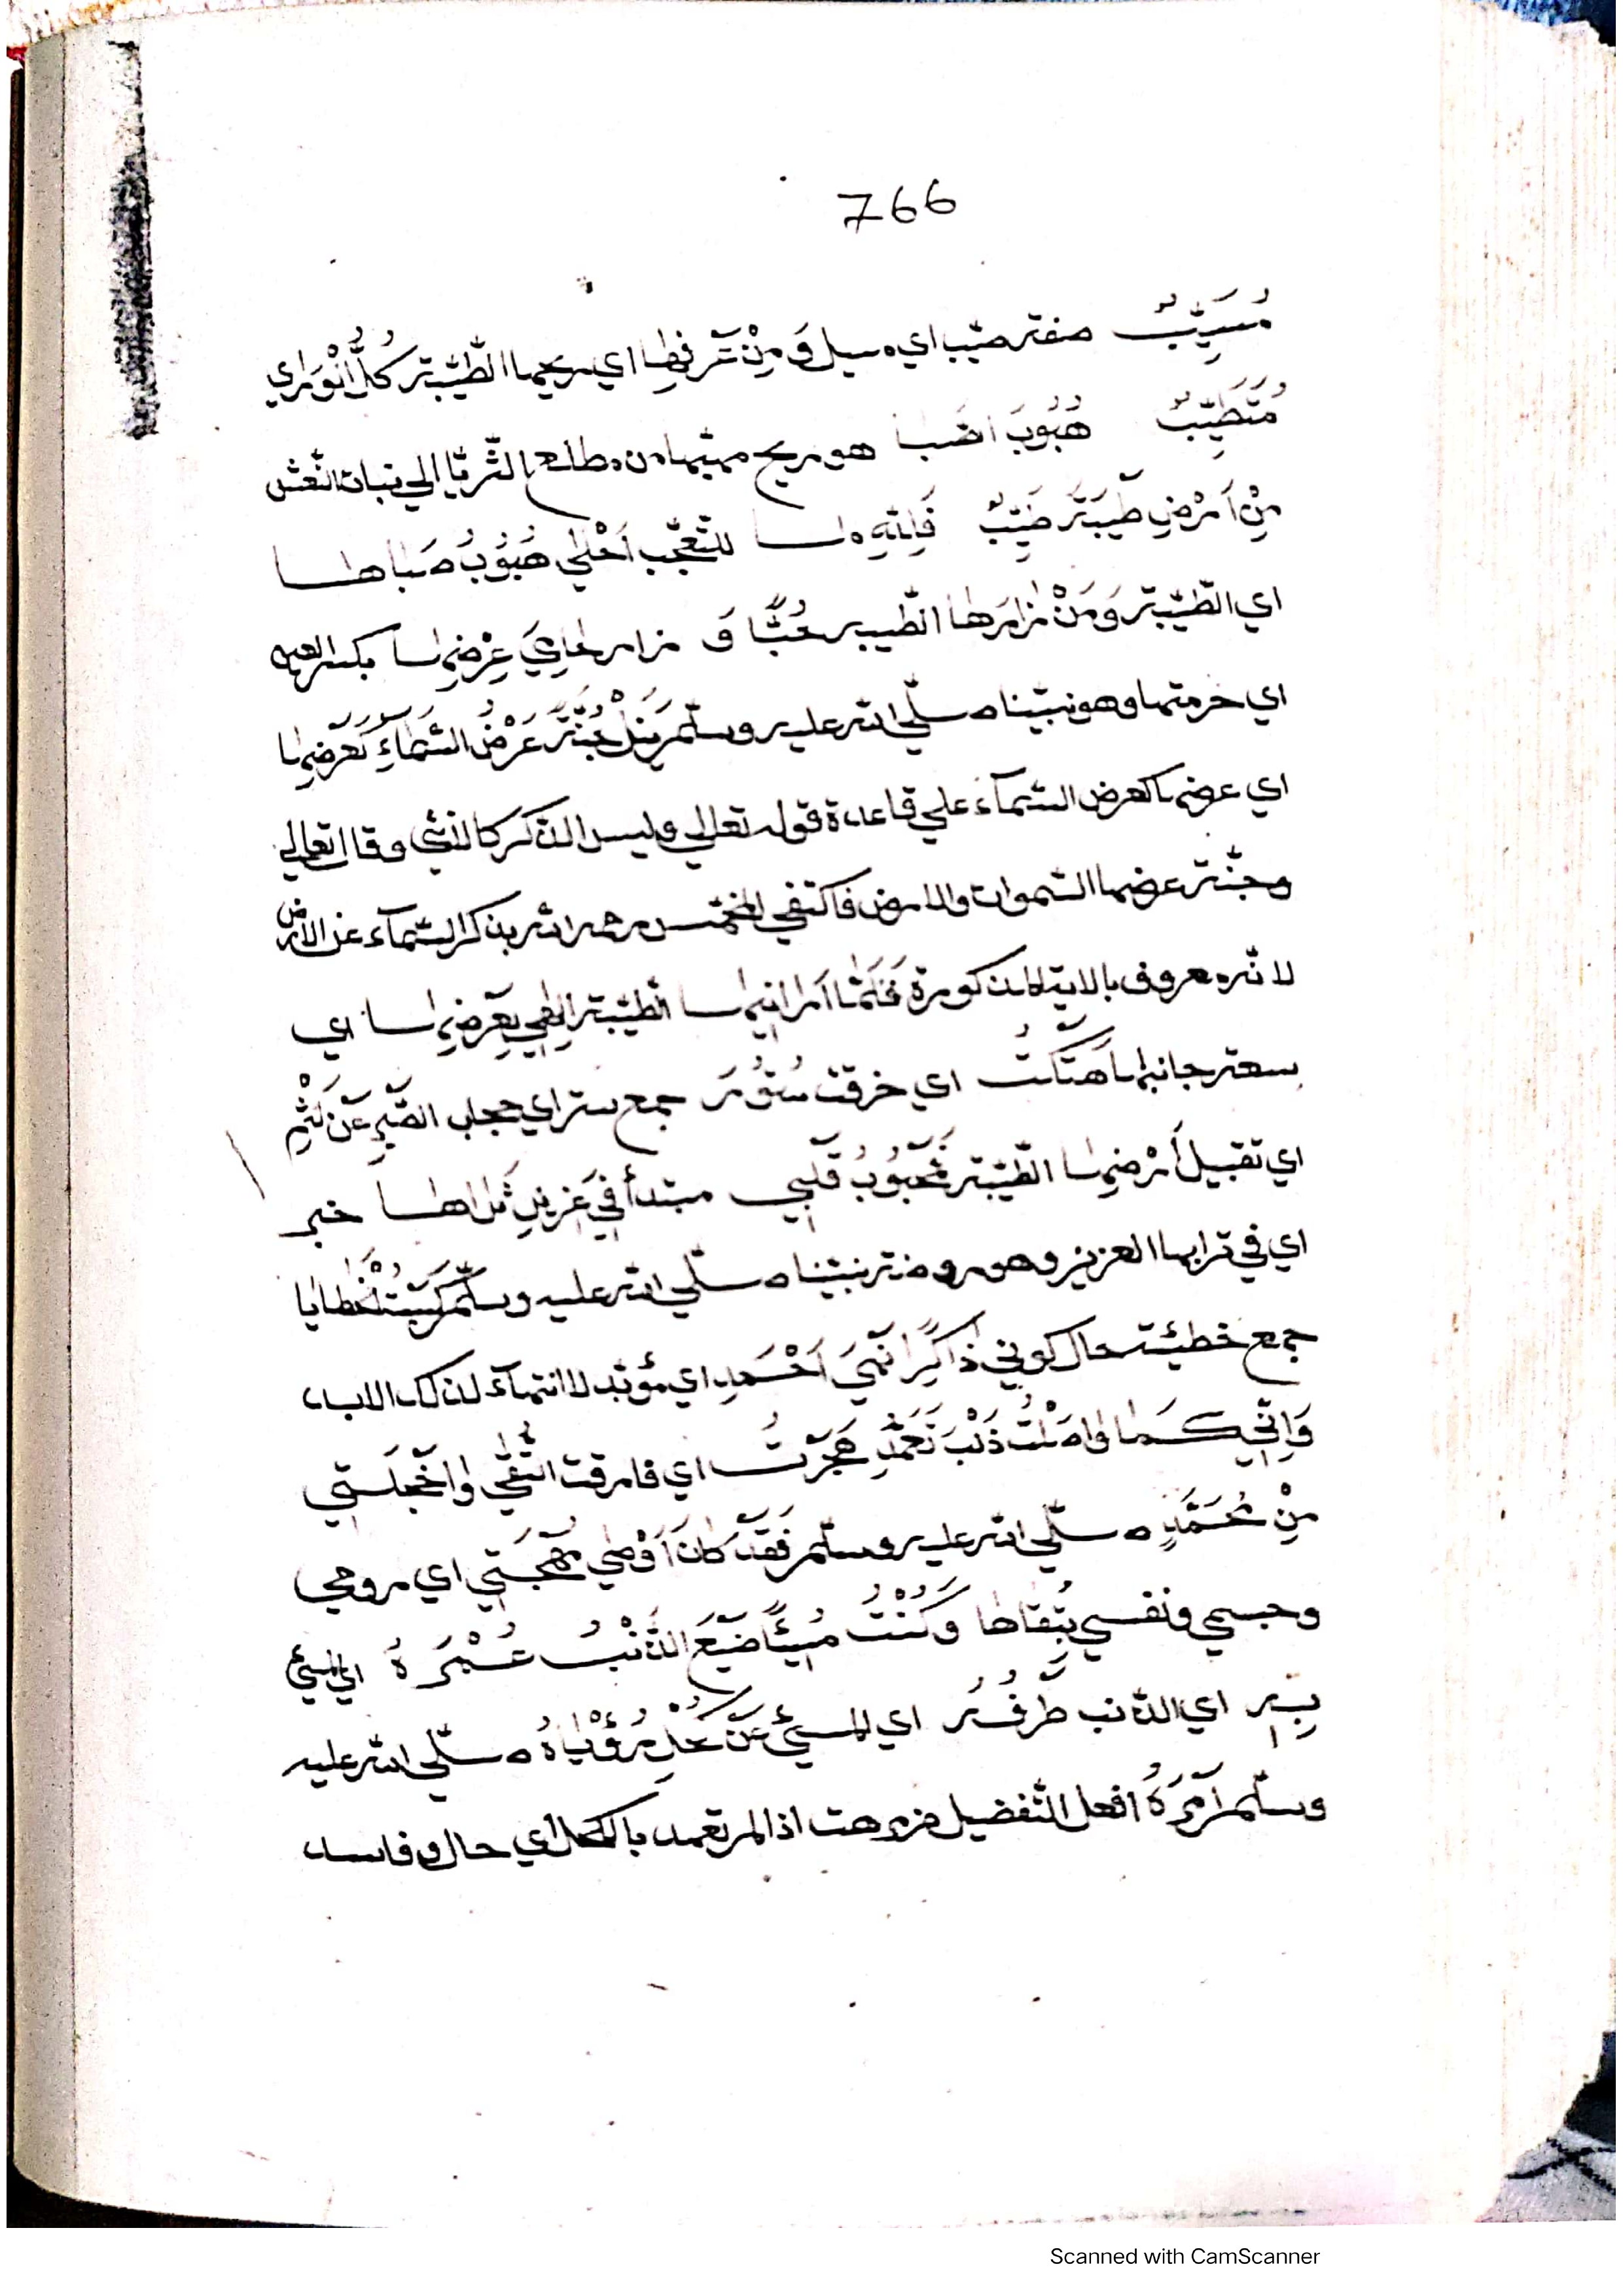 766
مُسَيِّبٌ صفة صيّب اي مسيل وَ مِنْ عَرْفِهَا اي ريحها الطّيّبة كُلُّ أَنْوَرِ اي
مُتَطَيِّبٌ هُبُوبَ الصَّبا هو ريح مهبّها من مطلع الثّريّا الي نبات النّعش
مِنْ اَرْضِ طَيْبَةَ طَيِّبٌ فَلِلّهِ مٰا للتّعجّب اَحْلٰي هُبُوْبُ صَبٰاهٰا
اي الطّيّبة وَمَنْ زٰارَهٰا الطّيبة حُبًّا وَ زار حٰامِيَ عِرْضِهٰا بكسر العين
اي حرمتها وهو نبيّنا صلّي الله عليه وسلّم يَنَلْ جَنَّةً عَرْضُ السَّمٰاءِ كَعَرْضِهٰا
اي عرضها كعرض السّمآء علي قاعدة قوله تعالي وليس الذّكر كالانثي وقال تعالي
وجنّة عرضها السّموات والارض فاكتفي المخمّس رحمه الله بذكر السّمآء عن الارض
لانّه معروف بالاية المذكورة فَلَمّٰا اَرانِيهٰا الطّيّبة اِلٰهِي بِعَرْضِهٰا اي
بسعة جانبها هَتَكْتُ اي خرقت سُتُوْرَ جمع ستر اي حجاب الصَّبْرِ عَنْ لَثْمِ
اي تقبيل اَرْضِهٰا الطّيّبة فَمَحْبُوْبُ قَلْبِي مبتدأ فِيْ عَزِيْزِ ثَرٰاهٰا خبر
اي في ترابها العزيز وهو روضة نبيّنا صلّي الله عليه وسلّم كَسَبْتُ الْخَطٰايٰا
جمع خطيئة حال كوني ذٰاكِرًا نَهْيَ اَحْمَدِ اي مؤبّد لا انتهآء لذلك الابد
وَاِنِّي كَمٰا وٰاصَلْتُ ذَنْبَ تَعَمُّدِ هَجَرْتُ اي فارقت التُّقٰي وٰاخَجْلَتِي
مِنْ مُحَمَّدٍ صلّي الله عليه وسلّم فَقَدْ كٰانَ اَوْصٰي مُهْجَتِي اي روحي
وجسمي ونفسي بِتُقٰاهٰا وَكُنْتُ مُسِيْئًا ضَيَّعَ الذَّنْبُ عُمْرَهُ اي المسيئ
بِهِ اي الذّنب طَرْفُهُ اي المسيئ عَنْ كُحْلِ رُؤْيٰاهُ صلّي الله عليه
وسلّم اَمْرَهُ افعل التّفضيل مرهت اذا لم تعمد بالكحل اي حال وفاسد
Scanned with CamScanner